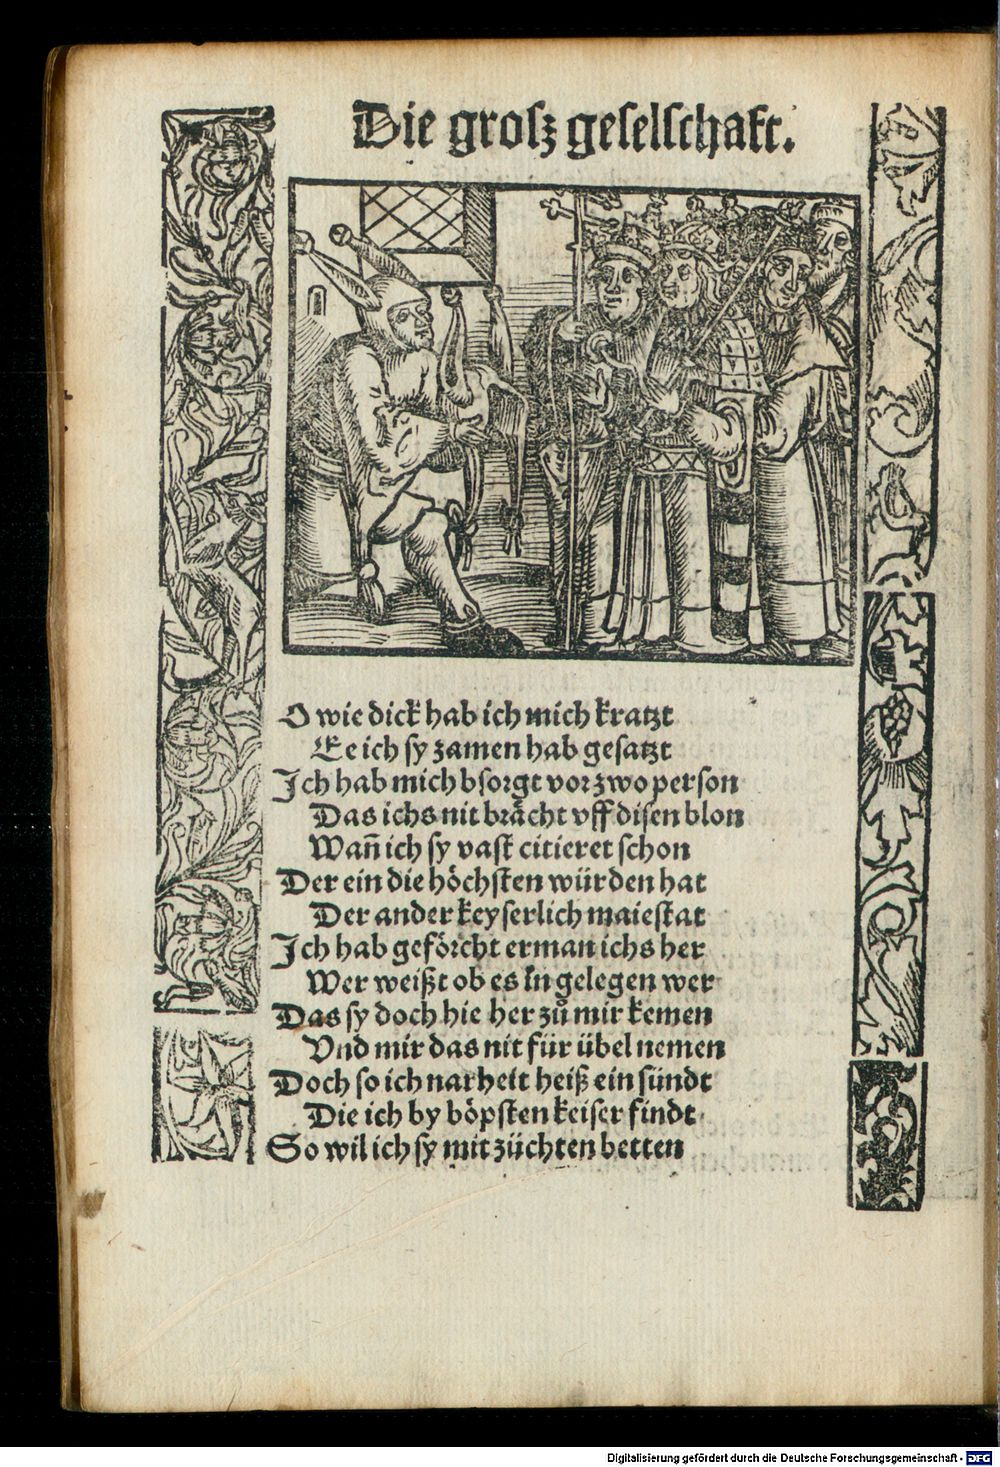 Die groſz geſelſchaft.
O wie dick hab ich mich kratzt
Ee ich ſy zamen hab geſatzt
Ich hab mich bſorgt vor zwo perſon
Das ichs nit bràcht vff diſen blon
Wañ ich ſy vaſt citieret ſchon
Der ein die höchſten würden hat
Der ander keyſerlich maieſtat
Ich hab geförcht erman ichs her
Wer weißt ob es in gelegen wer
Das ſy doch hie her zů mir kemen
Vnd mir das nit für übel nemen
Doch ſo ich narheit heiß ein ſündt
Die ich by böpſten keiſer findt
So wil ich ſy mit züchten betten
Digitalisierung gefördert durch die Deutsche Forschungsgemeinschaft - DFG